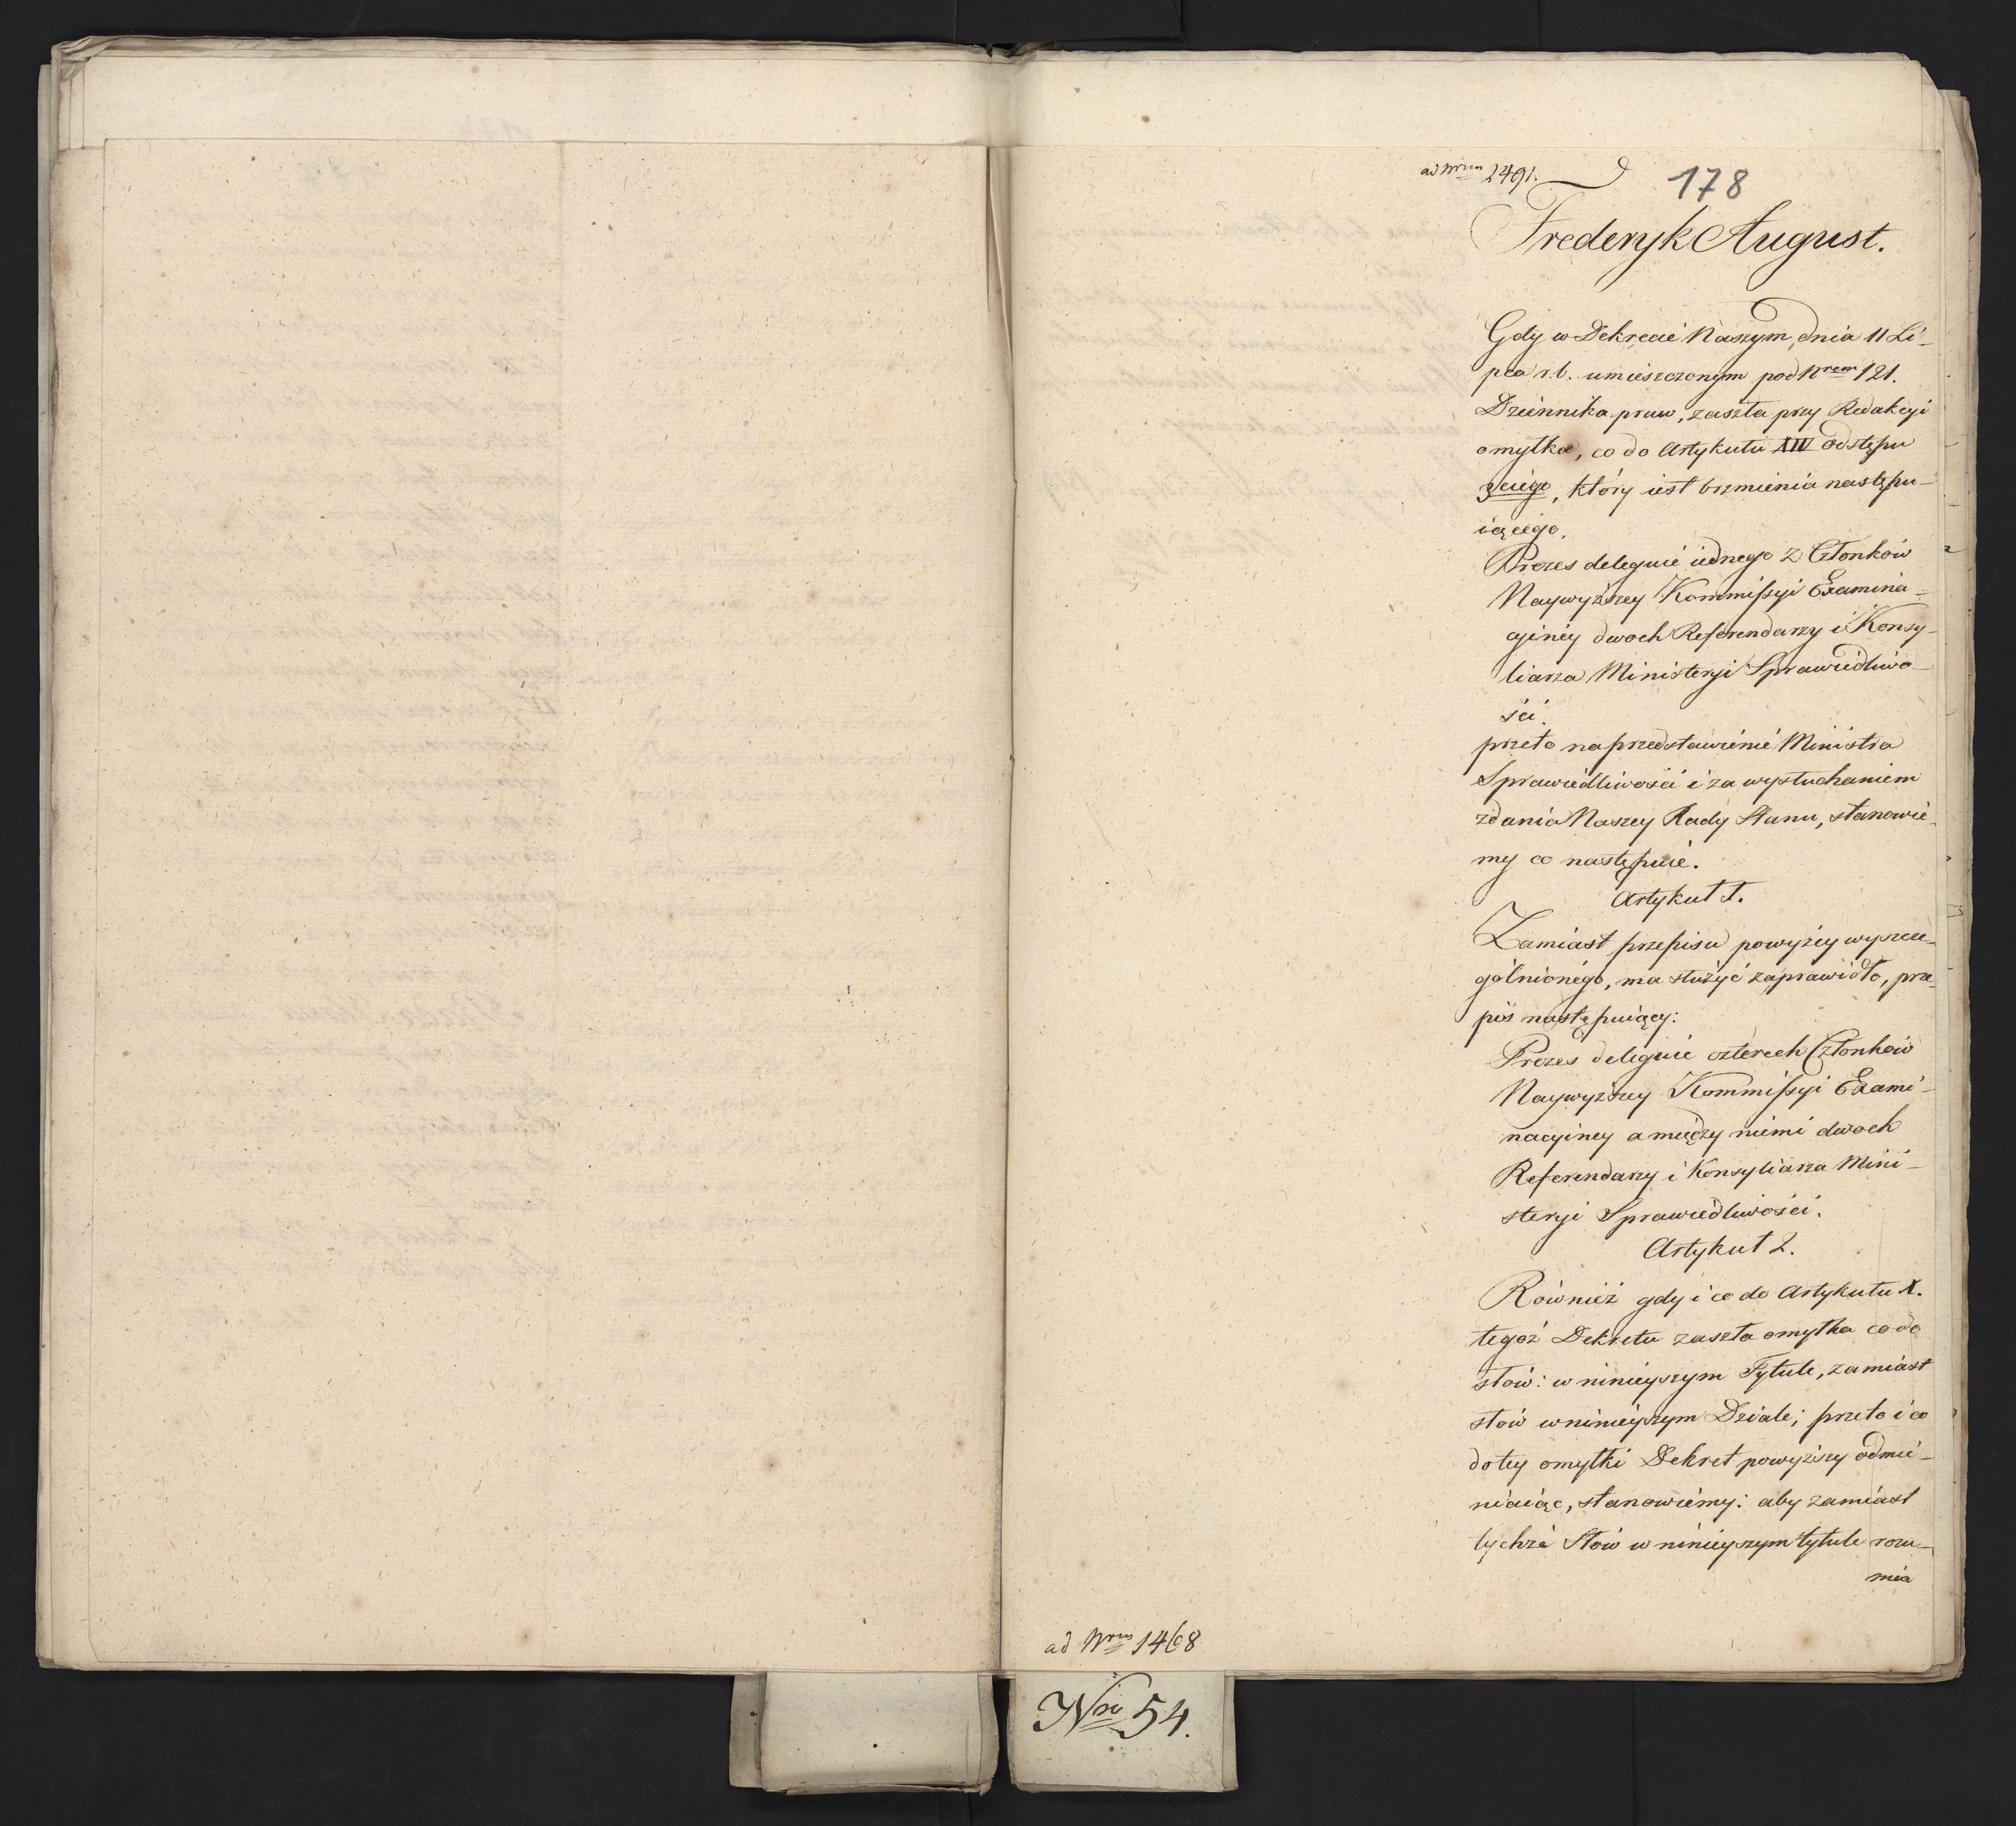 ad Nrum 2491.
178
Fryderyk August.
Gdy w Dekrecie Naszym dnia 11 Li-
pca r.b. umieszczonym pod Nrem 121.
Dziennika praw, zaszła przy Redakcyi
omyłka, co do Artykułu XIV odstępu
3ciego, który iest brzmienia następu-
iącego.
Prezes deleguie iednego z Członków
Naywyższey Kommissyi Examina-
cyiney dwoch Referendarzy i Konsy-
liarza Ministeryi Sprawiedliwo-
ści.
przeto na przedstawienie Ministra
Sprawiedliwości i za wysłuchaniem
zdania Naszey Rady Stanu, stanowie-
my co następuie.
Artykuł 1.
Zamiast przepisu powyżey wyszcze-
gólnionego, ma służyć za prawidło, prze-
pis następuiący:
Prezes deleguie czterech Członków
Naywyższey Kommissyi Exami-
nacyiney a między niemi dwoch
Referendarzy i Konsyliarza Mini-
steryi Sprawiedliwości.
Artykuł 2.
Również gdy i co do Artykułu X.
tegoż Dekretu zaszła omyłka co do
słów: w ninieyszym Tytule, zamiast
słów w ninieyszym Dziale; przeto i co
do tey omyłki Dekret powyższy odmie-
niaiąc, stanowiemy: aby zamiast
tychże Słów w ninieyszym tytule rozu-
mia
ad Nrum 1468
Nro 54.